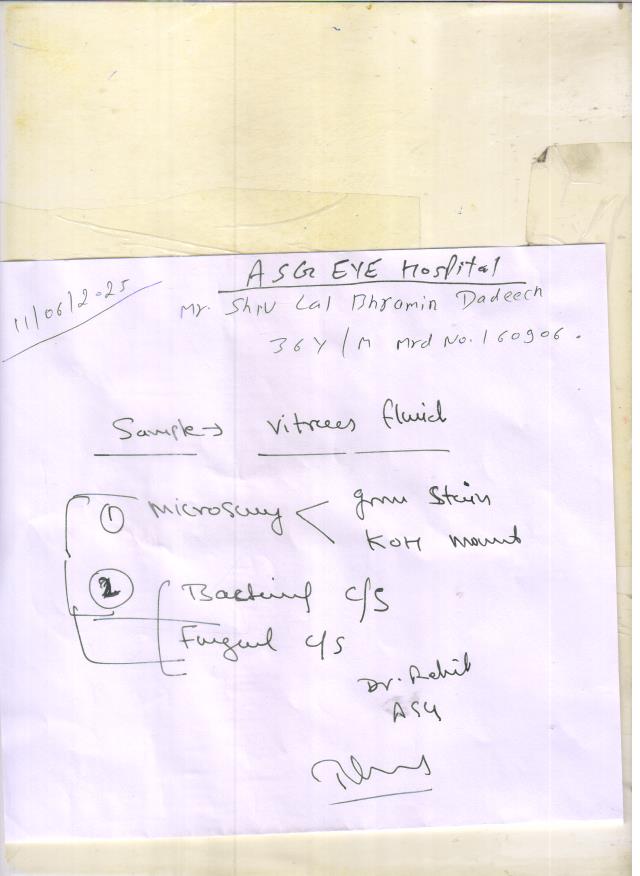 ASG EYE Hospital
11/06/2025
Mr. Shiv Lal Bhramin Dadeech
36Y/M Mrd No. 160906.
Sample→ Vitrees fluid
① Microscopy < gram Stain
KOH mount
② Bacterial c/s
Fungal c/s
Dr. Rohit
ASG